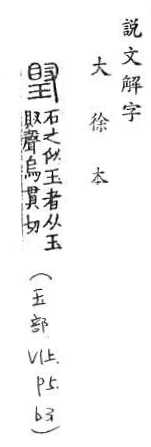 説文解字
大徐本
石之似玉者从玉
聲烏貫切
(玉部 V1上. p5. b3)